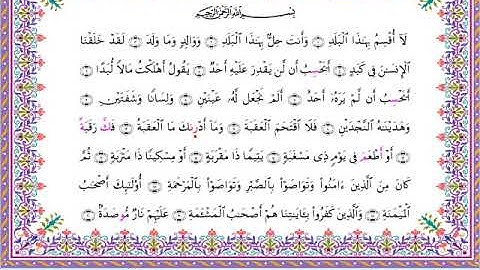 بِسْمِ اللَّهِ الرَّحْمَٰنِ الرَّحِيمِ
لَآ أُقْسِمُ بِهَٰذَا ٱلْبَلَدِ ۝ وَأَنتَ حِلٌّۢ بِهَٰذَا ٱلْبَلَدِ ۝ وَوَالِدٍ وَمَا وَلَدَ ۝ لَقَدْ خَلَقْنَا
ٱلْإِنسَٰنَ فِى كَبَدٍ ۝ أَيَحْسِبُ أَن لَّن يَقْدِرَ عَلَيْهِ أَحَدٌ ۝ يَقُولُ أَهْلَكْتُ مَالًا لُّبَدًا ۝
أَيَحْسِبُ أَن لَّمْ يَرَهُۥٓ أَحَدٌ ۝ أَلَمْ نَجْعَل لَّهُۥ عَيْنَيْنِ ۝ وَلِسَانًا وَشَفَتَيْنِ ۝
وَهَدَيْنَٰهُ ٱلنَّجْدَيْنِ ۝ فَلَا ٱقْتَحَمَ ٱلْعَقَبَةَ ۝ وَمَآ أَدْرَىٰكَ مَا ٱلْعَقَبَةُ ۝ فَكَّ رَقَبَةً
۝ أَوْ أَطْعَمَ فِى يَوْمٍ ذِى مَسْغَبَةٍ ۝ يَتِيمًا ذَا مَقْرَبَةٍ ۝ أَوْ مِسْكِينًا ذَا مَتْرَبَةٍ ۝ ثُمَّ
كَانَ مِنَ ٱلَّذِينَ ءَامَنُوا۟ وَتَوَاصَوْا۟ بِٱلصَّبْرِ وَتَوَاصَوْا۟ بِٱلْمَرْحَمَةِ ۝ أُو۟لَٰٓئِكَ أَصْحَٰبُ
ٱلْمَيْمَنَةِ ۝ وَٱلَّذِينَ كَفَرُوا۟ بِـَٔايَٰتِنَا هُمْ أَصْحَٰبُ ٱلْمَشْـَٔمَةِ ۝ عَلَيْهِمْ نَارٌ مُّوصَدَةٌۢ ۝